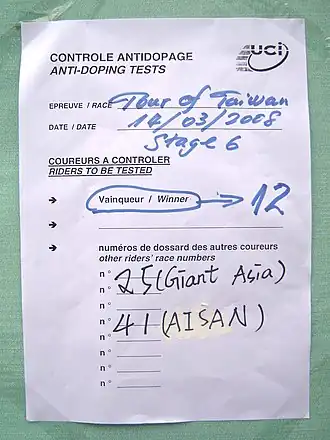 uci
CONTROLE ANTIDOPAGE
ANTI-DOPING TESTS
EPREUVE / RACE Tour of Taiwan
DATE / DATE 14/03/2008
Stage 6
COUREURS A CONTROLER
RIDERS TO BE TESTED
→ Vainqueur / Winner → 12
→
→ numéros de dossard des autres coureurs
other riders' race numbers
n° 25 (Giant Asia)
n°
n° 41 (AISAN)
n°
n°
n°
n°